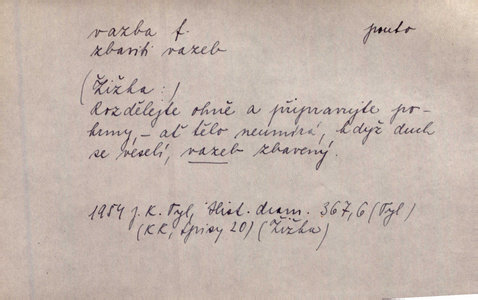 vazba f. pouto
zbaviti vazeb
(Žižka:)
Rozdělejte ohně a připravujte po-
krmy, – ať tělo neumírá, když duch
se veselí, vazeb zbavený.
1954 J. K. Tyl, Hist. dram. 367,6 (Tyl)
(KK, Spisy 20) (Žižka)